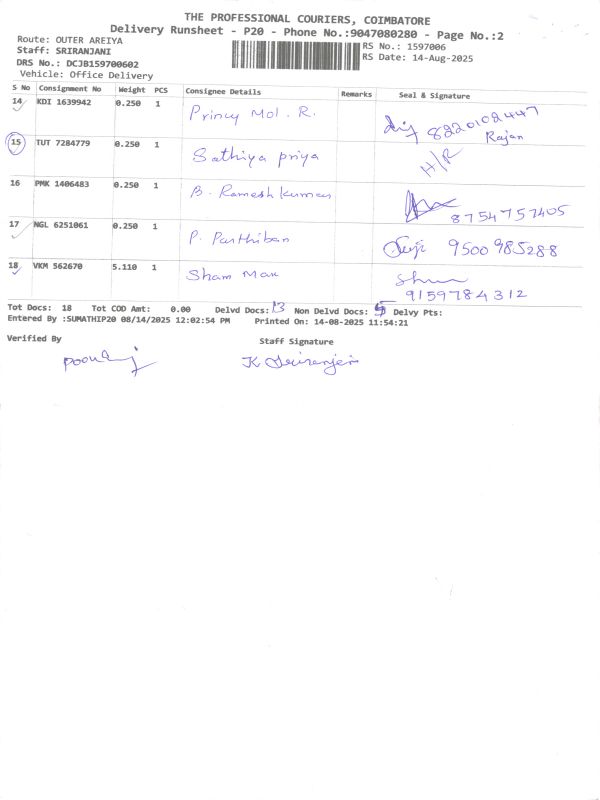 THE PROFESSIONAL COURIERS, COIMBATORE
Delivery Runsheet - P20 - Phone No.:9047080280 - Page No.:2
Route: OUTER AREIYA
RS No.: 1597006
Staff: SRIRANJANI
RS Date: 14-Aug-2025
DRS No.: DCJB159700602
Vehicle: Office Delivery
S No Consignment No Weight PCS Consignee Details Remarks Seal & Signature
14 KDI 1639942 0.250 1 Princy Mol. R. 8220102447
Rajan
15 TUT 7284779 0.250 1 Sathiya priya H/R
16 PMK 1406483 0.250 1 B. Rameshkumar
8754757405
17 NGL 6251061 0.250 1 P. Parthiban 9500985288
18 VKM 562670 5.110 1 Sham Mon
9159784312
Tot Docs: 18 Tot COD Amt: 0.00 Delvd Docs: 13 Non Delvd Docs: 5 Delvy Pts:
Entered By :SUMATHIP20 08/14/2025 12:02:54 PM Printed On: 14-08-2025 11:54:21
Verified By Staff Signature
K. Sriranjani